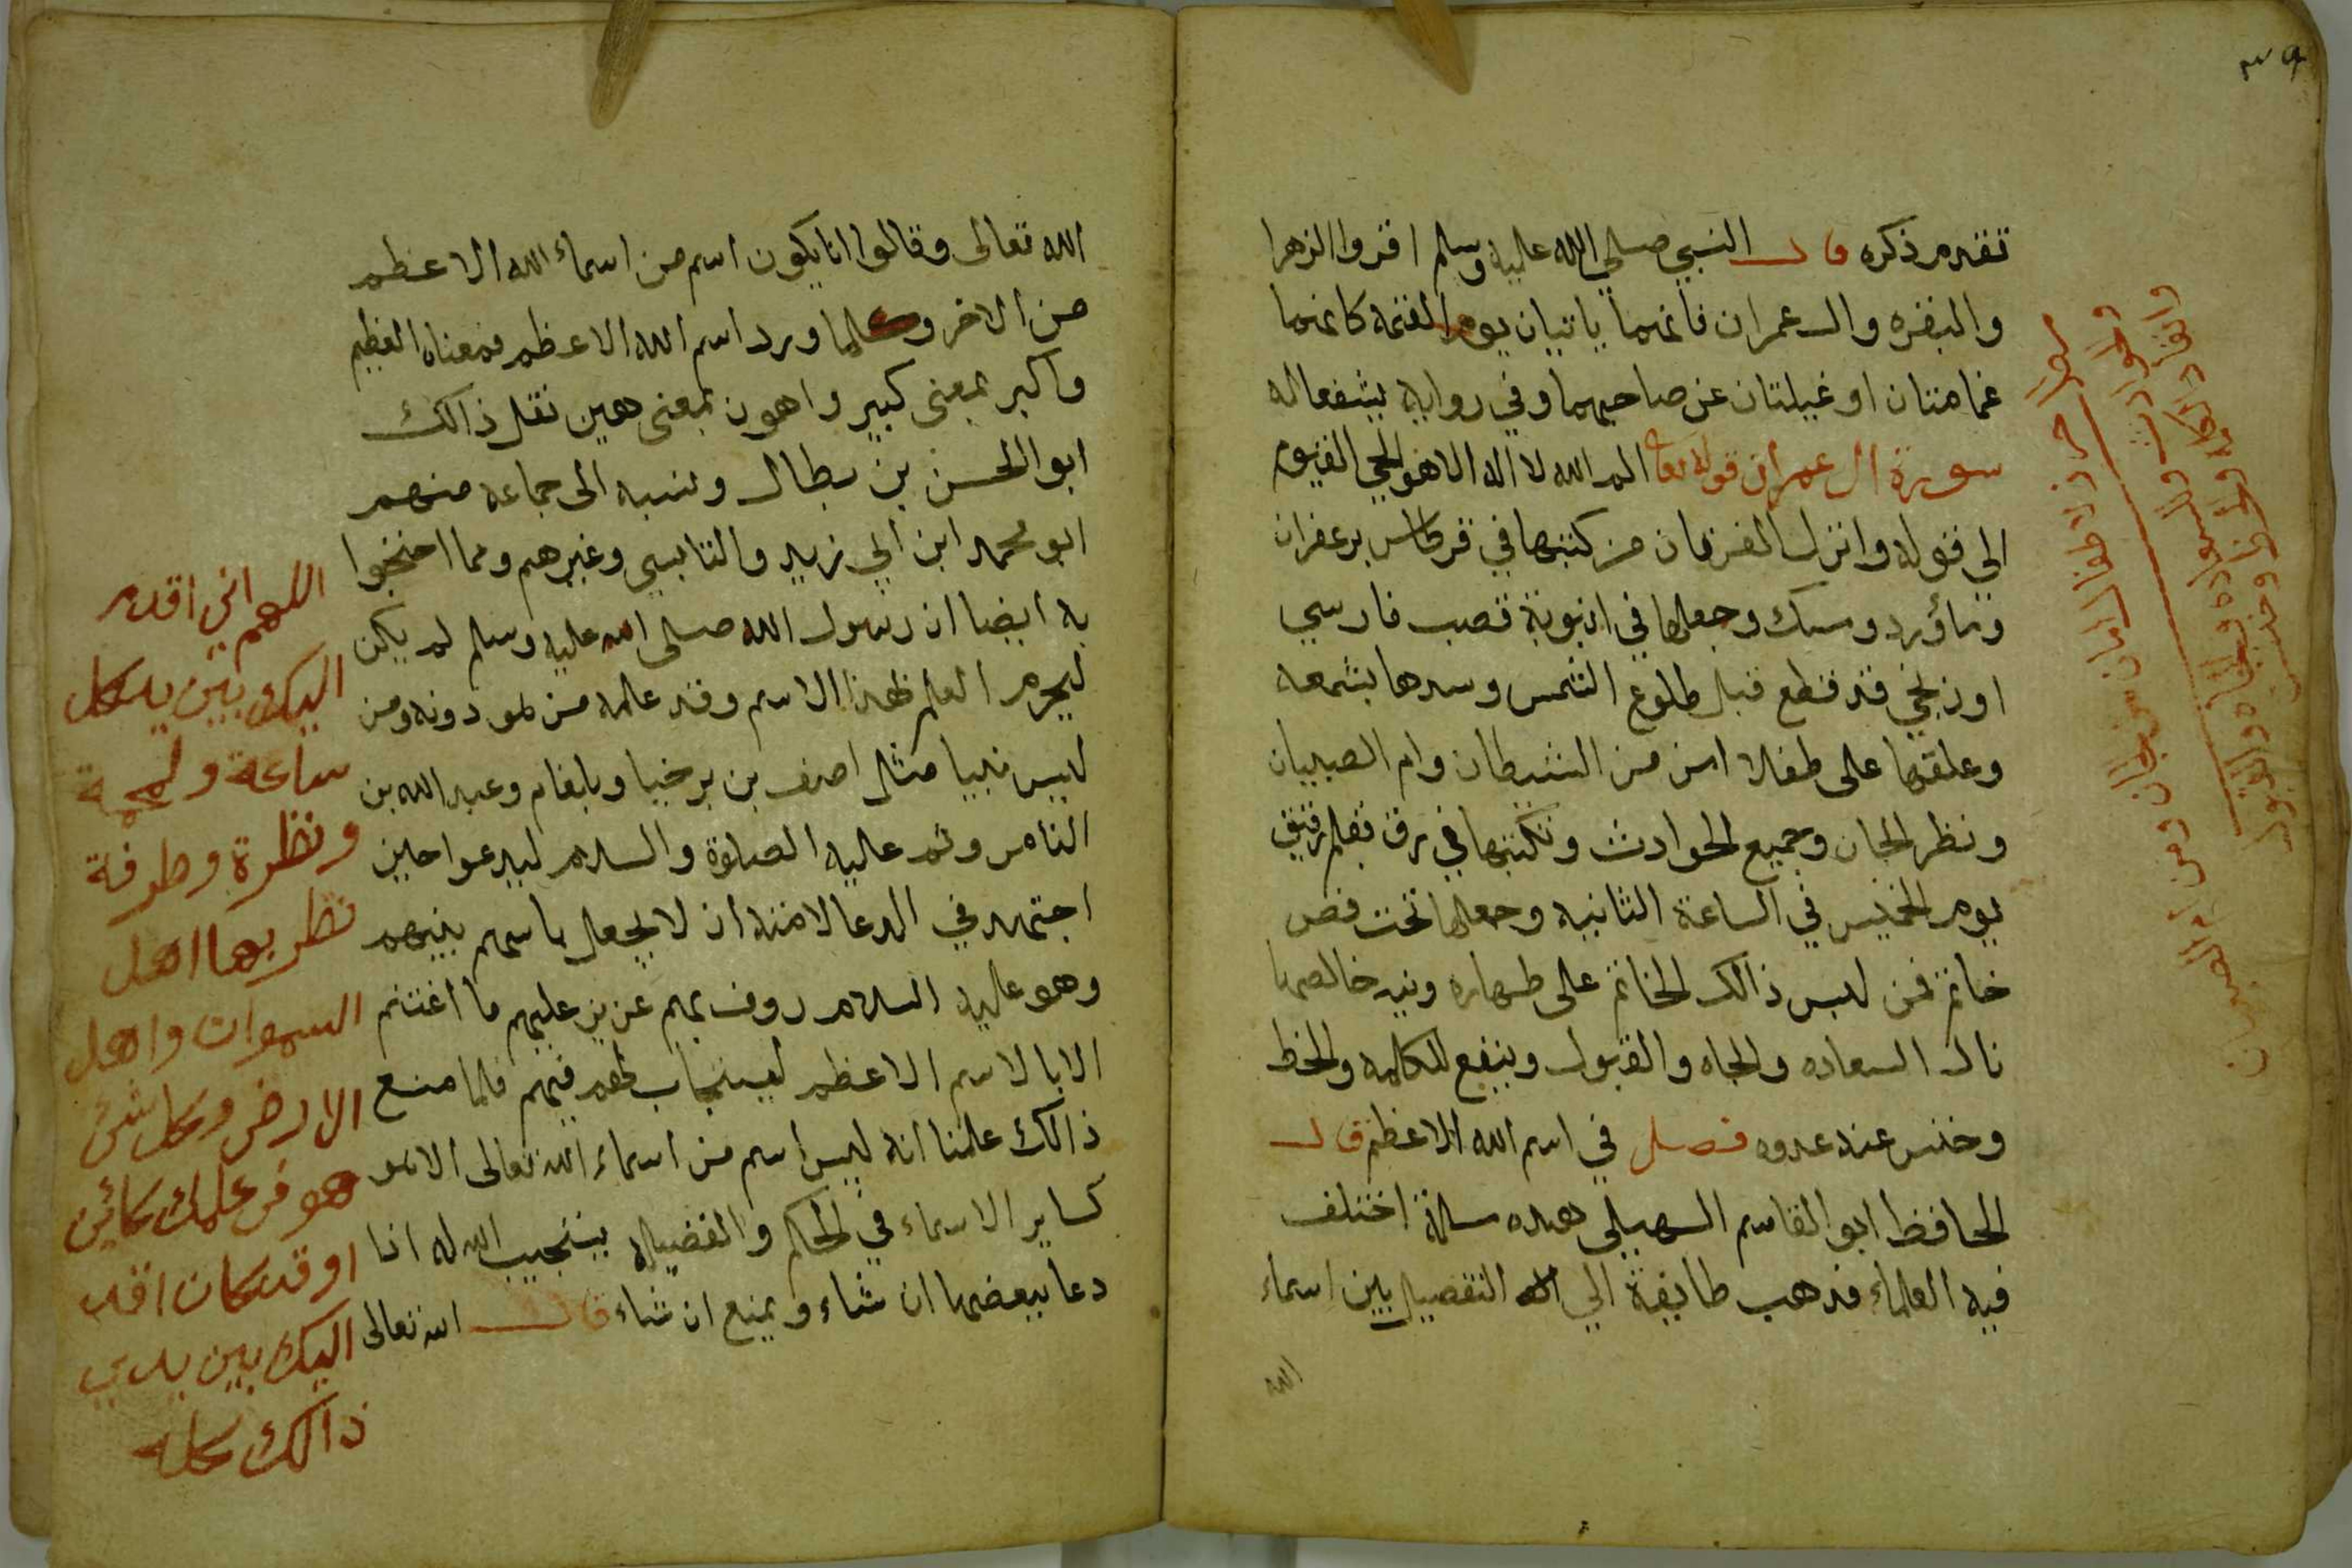 ٣٩
تقدم ذكره قال النبي صلى الله عليه وسلم اقروا الزهرا
والبقره وال عمران فانهما ياتيان يوم القيمه كانهما
غمامتان او غيلتان عن صاحبهما وفي روايه يشفعا له
سورة ال عمران قوله تعا الم الله لا اله الا هو الحي القيوم
الي قوله وانزل الفرقان من كتبها في قرطاس بزعفران
وماورد ومسك وجعلها في انبوبة قصب فارسي
او زنجي قد قطع قبل طلوع الشمس وسدها بشمعه
وعلقها على طفلا امن من الشيطان وام الصبيان
ونظر الجان وجميع الحوادث وتكتبها في رق بقلم رقيق
يوم الخميس في الساعة الثانيه وجعلها تحت فص
خاتم فمن لبس ذالك الخاتم على طهاره ونيه خالصها
نال السعاده والجاه والقبول وينفع للكلمه والحظ
وخنس عنه عدوه فصل في اسم الله الاعظم قال
الحافظ ابو القاسم السهيلي هده مسالة اختلف
فيه العلماء فدهب طايفة الي التفصيل بين اسماء
الله
الله تعالى وقالوا انا يكون اسم من اسماء الله الاعظم
من الاخر وكلما ورد اسم الله الاعظم فمعناه العظيم
واكبر بمعنى كبير واهون بمعنى هين نقل ذالك
ابو الحسن بن بطال ونسبه الى جماعه منهم
ابو محمد ابن ابي زيد والقابسي وغيرهم ومما احتجوا
به ايضا ان رسول الله صلى الله عليه وسلم لم يكن
ليحرم العلم بهذا الاسم وقد علمه من هو دونه ومن
ليس نبيا مثل اصف بن برخيا وبلعام وعبد الله بن
الثامر ولم عليه الصلوة والسلام ليدعوا حين
اجتهد في الدعا لامته ان لا يجعل باسهم بينهم
وهو عليه السلام روف بهم عزيز عليهم ما اعنتهم
الا بالاسم الاعظم ليستجاب لهم فيهم فلما منع
ذالك علمنا انه ليس اسم من اسماء الله تعالى الا هو
كساير الاسماء في الحكم والفضيله يستجيب الله له اذا
دعا ببعضها ان شاء ويمنع ان شاء قال الله تعالى
اللهم اني اقدم
اليك بين يد كل
ساعة ولمحة
ونظرة وطرفة
تطربها اهل
السموات واهل
الارض وكل شئ
هو في علمك كائن
او قد كان اقدم
اليك بين يدي
ذالك كله